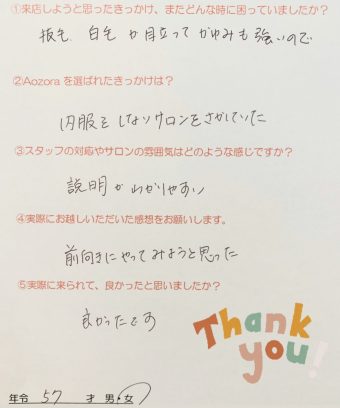 ①来店しようと思ったきっかけ、またどんな時に困っていましたか？
抜毛、白毛が目立ってかゆみも強いので
②Aozoraを選ばれたきっかけは？
内服をしないサロンをさがしていた
③スタッフの対応やサロンの雰囲気はどのような感じですか？
説明がわかりやすい
④実際にお越しいただいた感想をお願いします。
前向きにやってみようと思った
⑤実際に来られて、良かったと思いましたか？
良かったです
Thank
you!
年令 57 才 男・女